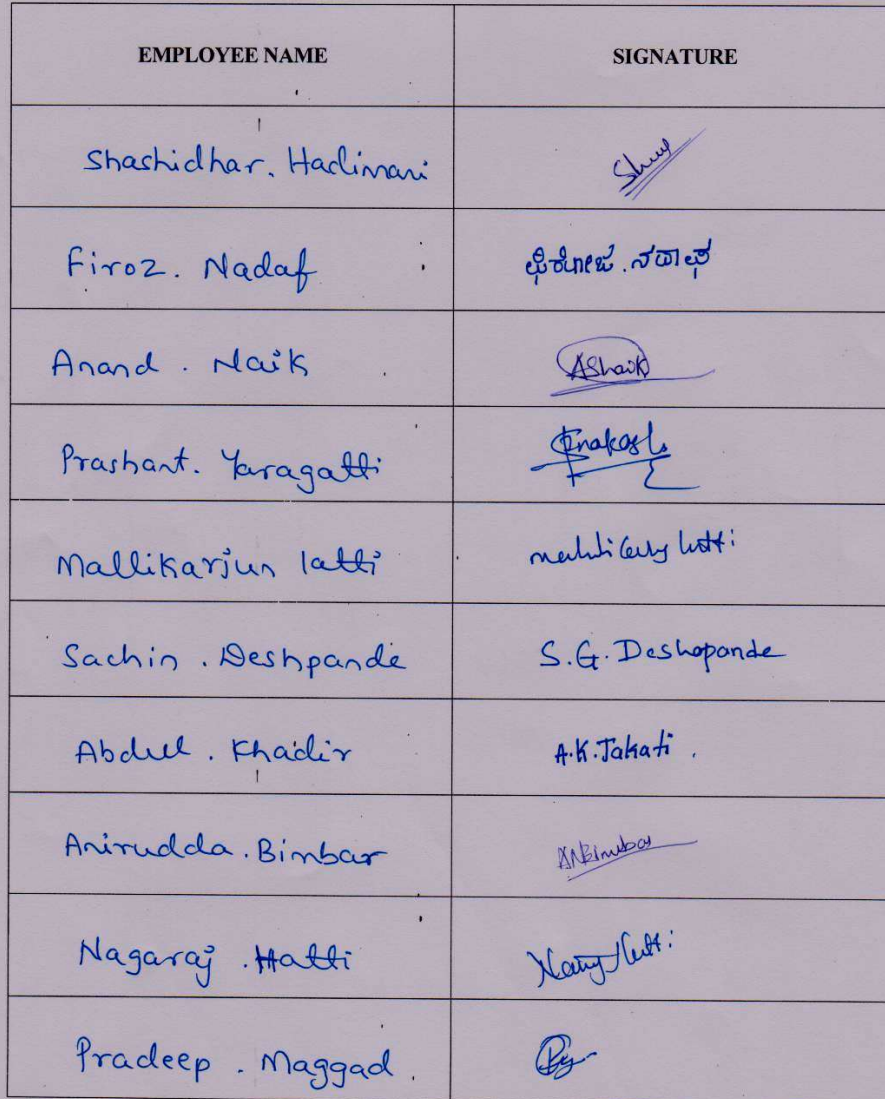 EMPLOYEE NAME SIGNATURE
Shashidhar. Hadimani
Firoz. Nadaf ಫಿರೋಜ. ನದಾಫ
Anand. Naik
Prashant. Yaragatti
Mallikarjun latti
Sachin. Deshpande S.G. Deshpande
Abdul. Khadir A.K. Jakati.
Anirudda. Bimbar ANBimbar
Nagaraj. Hatti
Pradeep. Maggad.